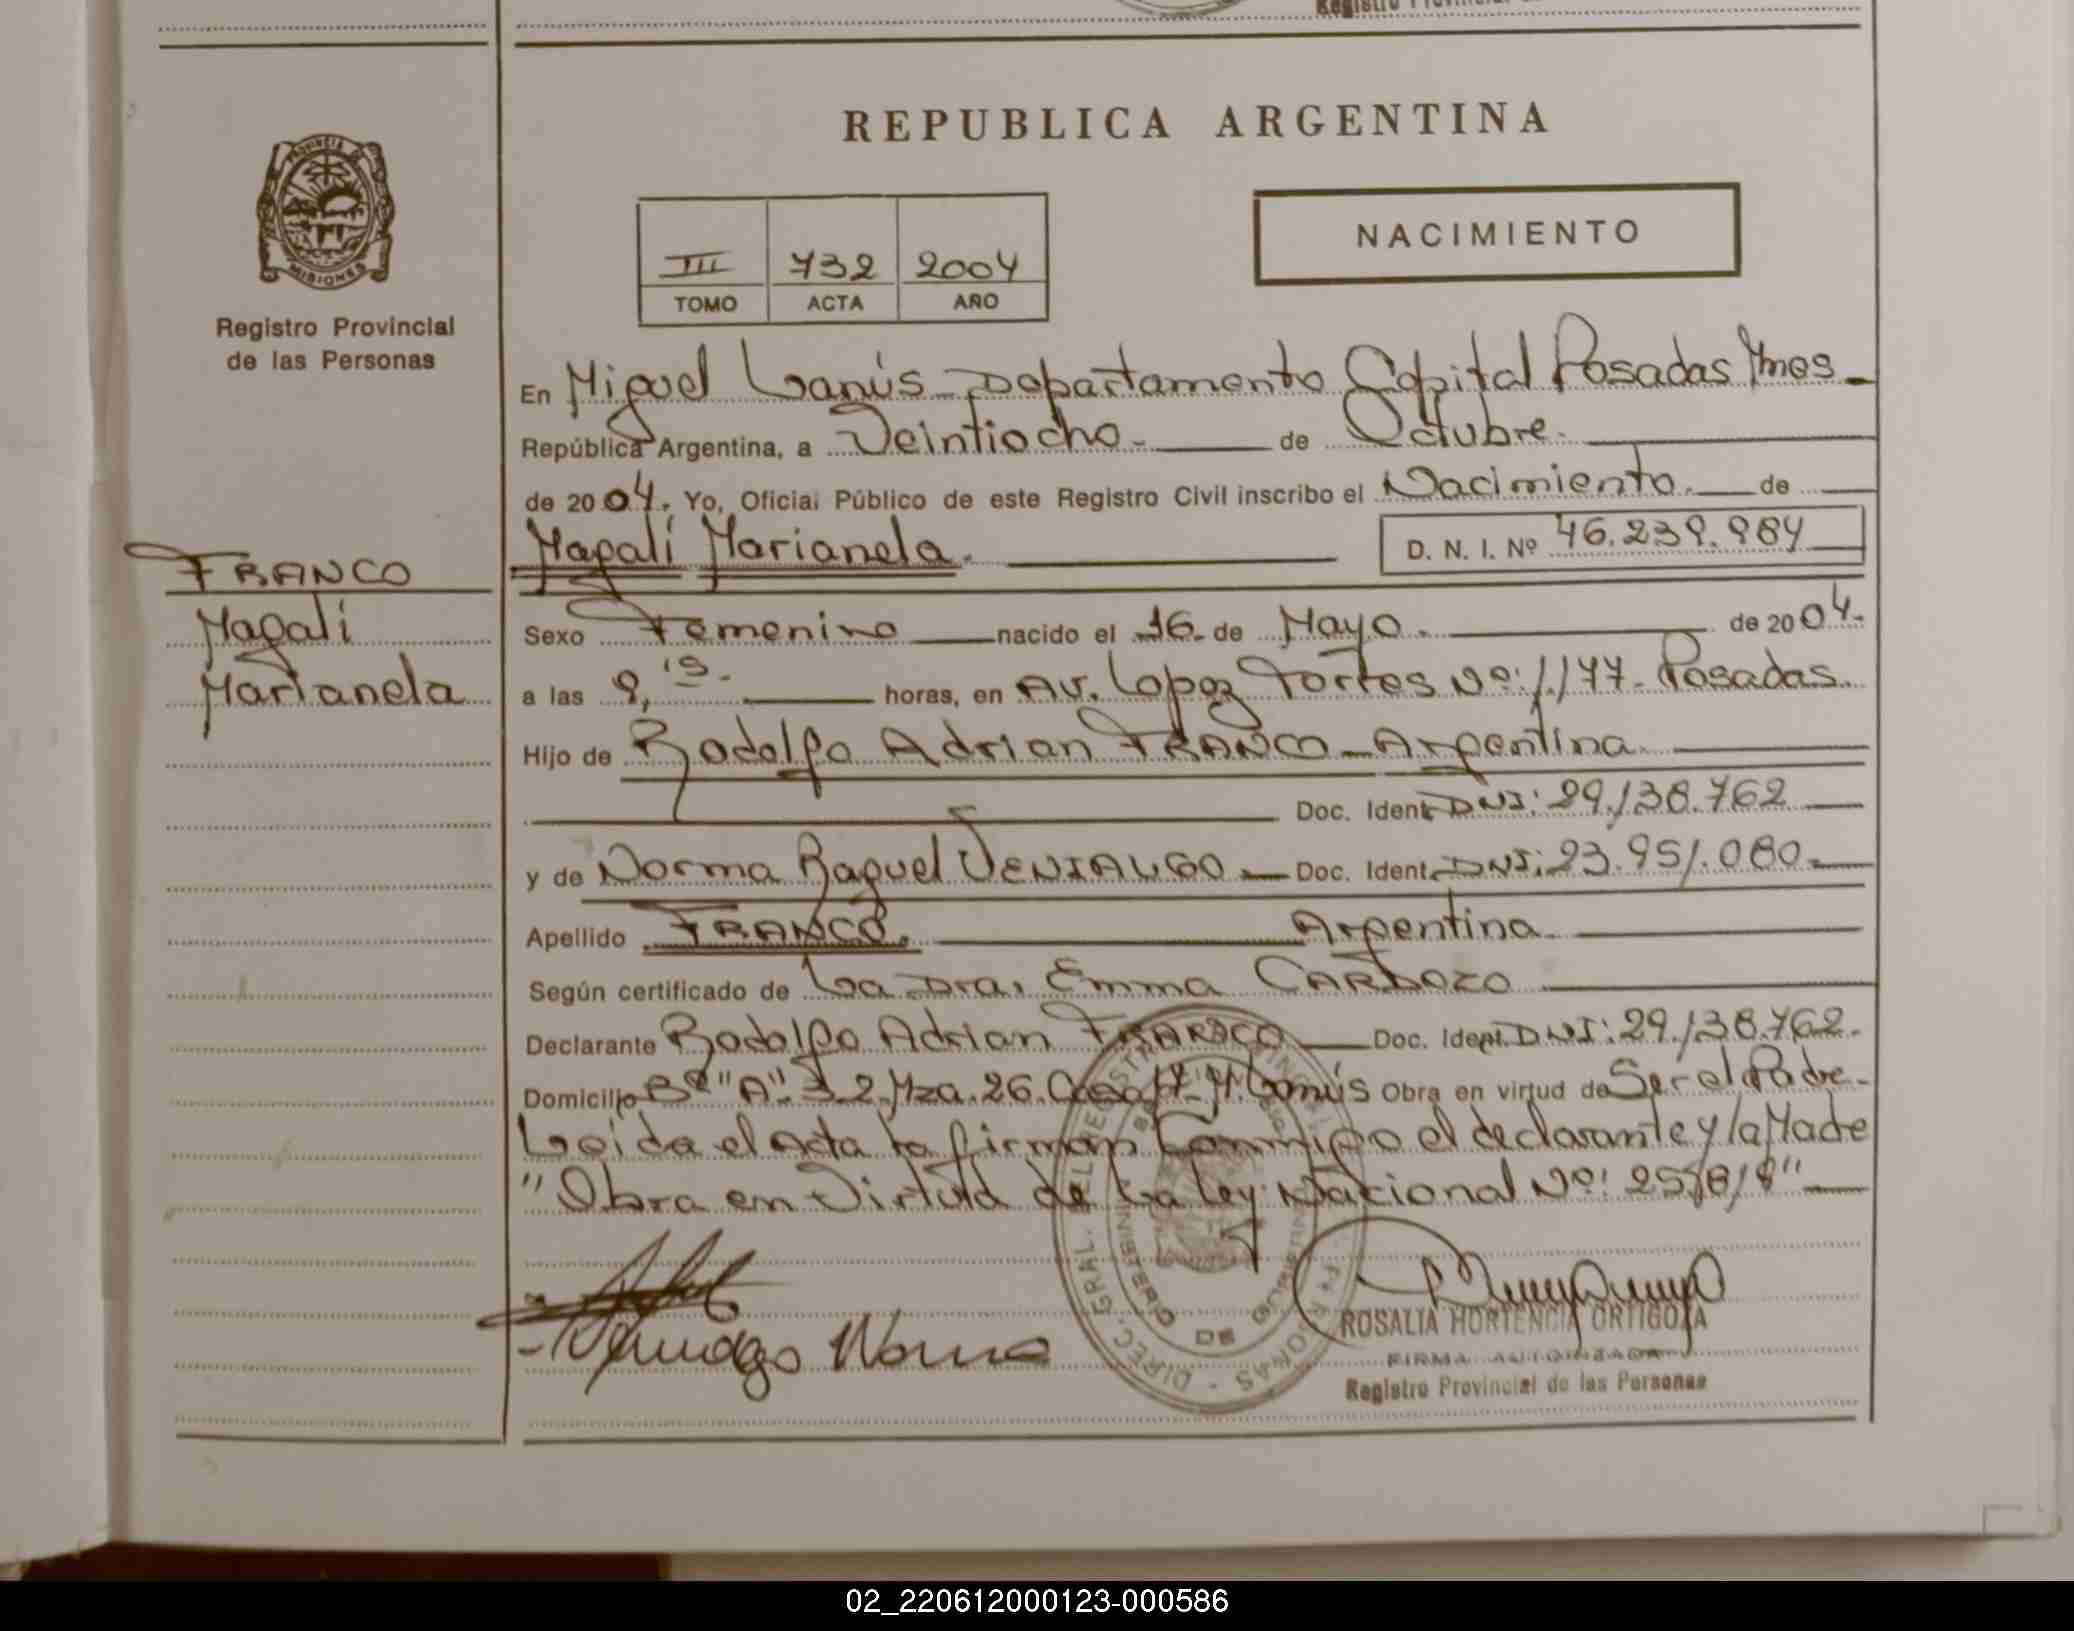 REPUBLICA ARGENTINA
PROVINCIA DE
MISIONES
Registro Provincial
de las Personas
NACIMIENTO
III 732 2004
TOMO ACTA AÑO
En Miguel Lanús - Departamento Capital Posadas Mnes -
República Argentina, a Veintiocho.- de Octubre.-
de 2004. Yo, Oficial Público de este Registro Civil inscribo el Nacimiento. de
Magali Marianela. D. N. I. Nº 46.239.984
FRANCO
Magali
Marianela
Sexo Femenino nacido el 16 de Mayo. de 2004.-
a las 9,15.- horas, en Av. Lopez Torres Nº: 1.177- Posadas.
Hijo de Rodolfo Adrian FRANCO - Argentina.
Doc. Ident. DNI: 29.138.762
y de Norma Raquel VENIALGO - Doc. Ident. DNI: 23.951.080.-
Apellido FRANCO. Argentina.
Según certificado de La Dra. Emma CARDOZO
Declarante Rodolfo Adrian FRANCO Doc. Ident. DNI: 29.138.762.-
Domicilio Bº "A" 3.2. Mza. 26. Casa M. Lanús Obra en virtud de Ser el Padre.-
Leída el Acta la firman Conmigo el declarante y la Madre
"Obra en Virtud de La Ley Nacional Nº: 25.818"
Venialgo Norma
ROSALIA HORTENCIA ORTIGOZA
FIRMA AUTORIZADA
Registro Provincial de las Personas
02_220612000123-000586